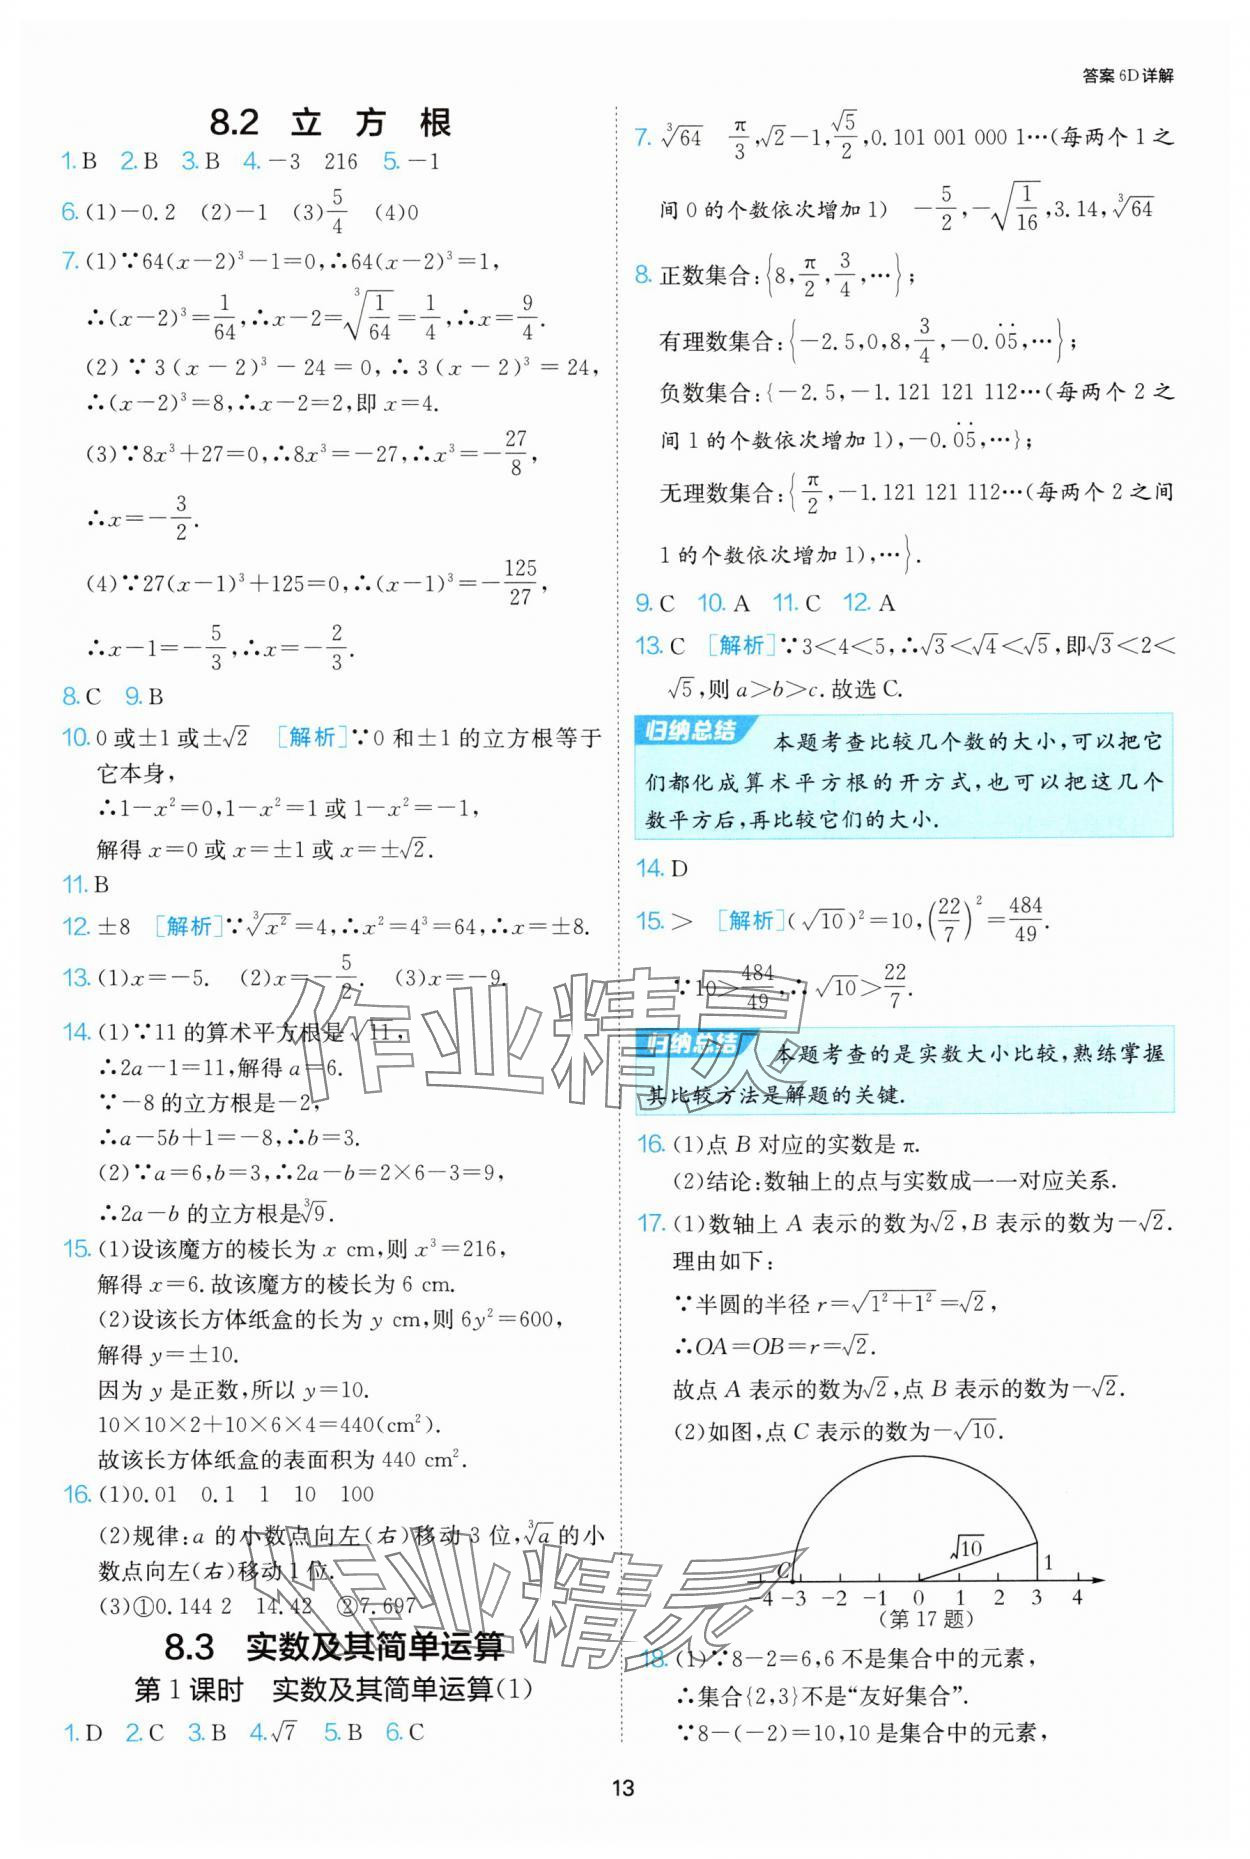 答案6D详解
8.2 立 方 根
1. B 2. B 3. B 4. －3 216 5. －1
6. (1)－0.2 (2)－1 (3)5/4 (4)0
7. (1)∵64(x－2)³－1＝0,∴64(x－2)³＝1,
∴(x－2)³＝1/64,∴x－2＝∛(1/64)＝1/4,∴x＝9/4.
(2)∵3(x－2)³－24＝0,∴3(x－2)³＝24,
∴(x－2)³＝8,∴x－2＝2,即x＝4.
(3)∵8x³＋27＝0,∴8x³＝－27,∴x³＝－27/8,
∴x＝－3/2.
(4)∵27(x－1)³＋125＝0,∴(x－1)³＝－125/27,
∴x－1＝－5/3,∴x＝－2/3.
8. C 9. B
10. 0或±1或±√2 [解析]∵0和±1的立方根等于
它本身,
∴1－x²＝0,1－x²＝1或1－x²＝－1,
解得x＝0或x＝±1或x＝±√2.
11. B
12. ±8 [解析]∵∛x²＝4,∴x²＝4³＝64,∴x＝±8.
13. (1)x＝－5. (2)x＝－5/2. (3)x＝－9.
14. (1)∵11的算术平方根是√11,
∴2a－1＝11,解得a＝6.
∵－8的立方根是－2,
∴a－5b＋1＝－8,∴b＝3.
(2)∵a＝6,b＝3,∴2a－b＝2×6－3＝9,
∴2a－b的立方根是∛9.
15. (1)设该魔方的棱长为x cm,则x³＝216,
解得x＝6.故该魔方的棱长为6 cm.
(2)设该长方体纸盒的长为y cm,则6y²＝600,
解得y＝±10.
因为y是正数,所以y＝10.
10×10×2＋10×6×4＝440(cm²).
故该长方体纸盒的表面积为440 cm².
16. (1)0.01 0.1 1 10 100
(2)规律:a的小数点向左(右)移动3位,∛a的小
数点向左(右)移动1位.
(3)①0.144 2 14.42 ②7.697
8.3 实数及其简单运算
第1课时 实数及其简单运算(1)
1. D 2. C 3. B 4. √7 5. B 6. C
7. ∛64 π/3,√2－1,√5/2,0.101 001 000 1…(每两个1之
间0的个数依次增加1) －5/2,－√(1/16),3.14,∛64
8. 正数集合:{8,π/2,3/4,…};
有理数集合:{－2.5,0,8,3/4,－0.0̇5̇,…};
负数集合:{－2.5,－1.121 121 112…(每两个2之
间1的个数依次增加1),－0.0̇5̇,…};
无理数集合:{π/2,－1.121 121 112…(每两个2之间
1的个数依次增加1),…}.
9. C 10. A 11. C 12. A
13. C [解析]∵3＜4＜5,∴√3＜√4＜√5,即√3＜2＜
√5,则a＞b＞c.故选C.
归纳总结 本题考查比较几个数的大小,可以把它
们都化成算术平方根的开方式,也可以把这几个
数平方后,再比较它们的大小.
14. D
15. ＞ [解析](√10)²＝10,(22/7)²＝484/49.
∵10＞484/49,∴√10＞22/7.
归纳总结 本题考查的是实数大小比较,熟练掌握
其比较方法是解题的关键.
16. (1)点B对应的实数是π.
(2)结论:数轴上的点与实数成一一对应关系.
17. (1)数轴上A表示的数为√2,B表示的数为－√2.
理由如下:
∵半圆的半径r＝√(1²＋1²)＝√2,
∴OA＝OB＝r＝√2.
故点A表示的数为√2,点B表示的数为－√2.
(2)如图,点C表示的数为－√10.
√10
C 1
－4 －3 －2 －1 0 1 2 3 4
(第17题)
18. (1)∵8－2＝6,6不是集合中的元素,
∴集合{2,3}不是“友好集合”.
∵8－(－2)＝10,10是集合中的元素,
13
作业精灵
作业精灵